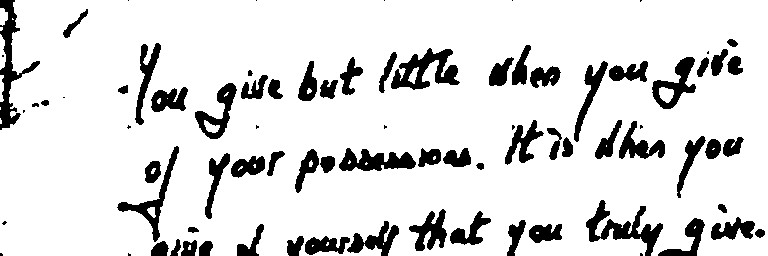 You give but little when you give
of your possessions. It is when you
give of yourself that you truly give.